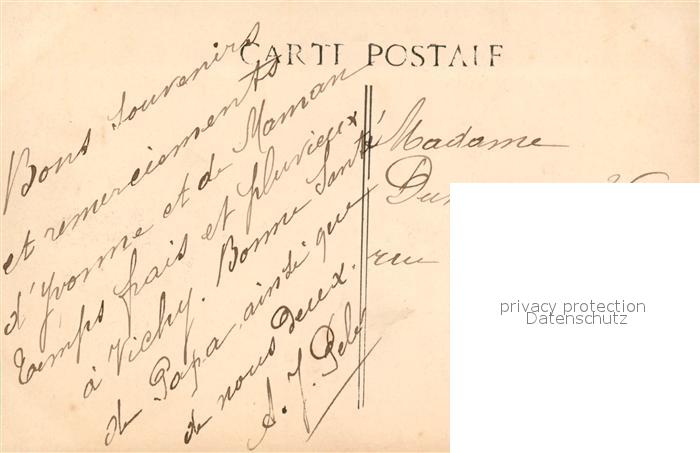 CARTE POSTALE
Bons Souvenirs
et remerciements
d'Yvonne et de Maman
temps frais et pluvieux
à Vichy. Bonne Santé
de Papa ainsi que
de nous deux.
A. J.
Madame
rue
privacy protection
Datenschutz